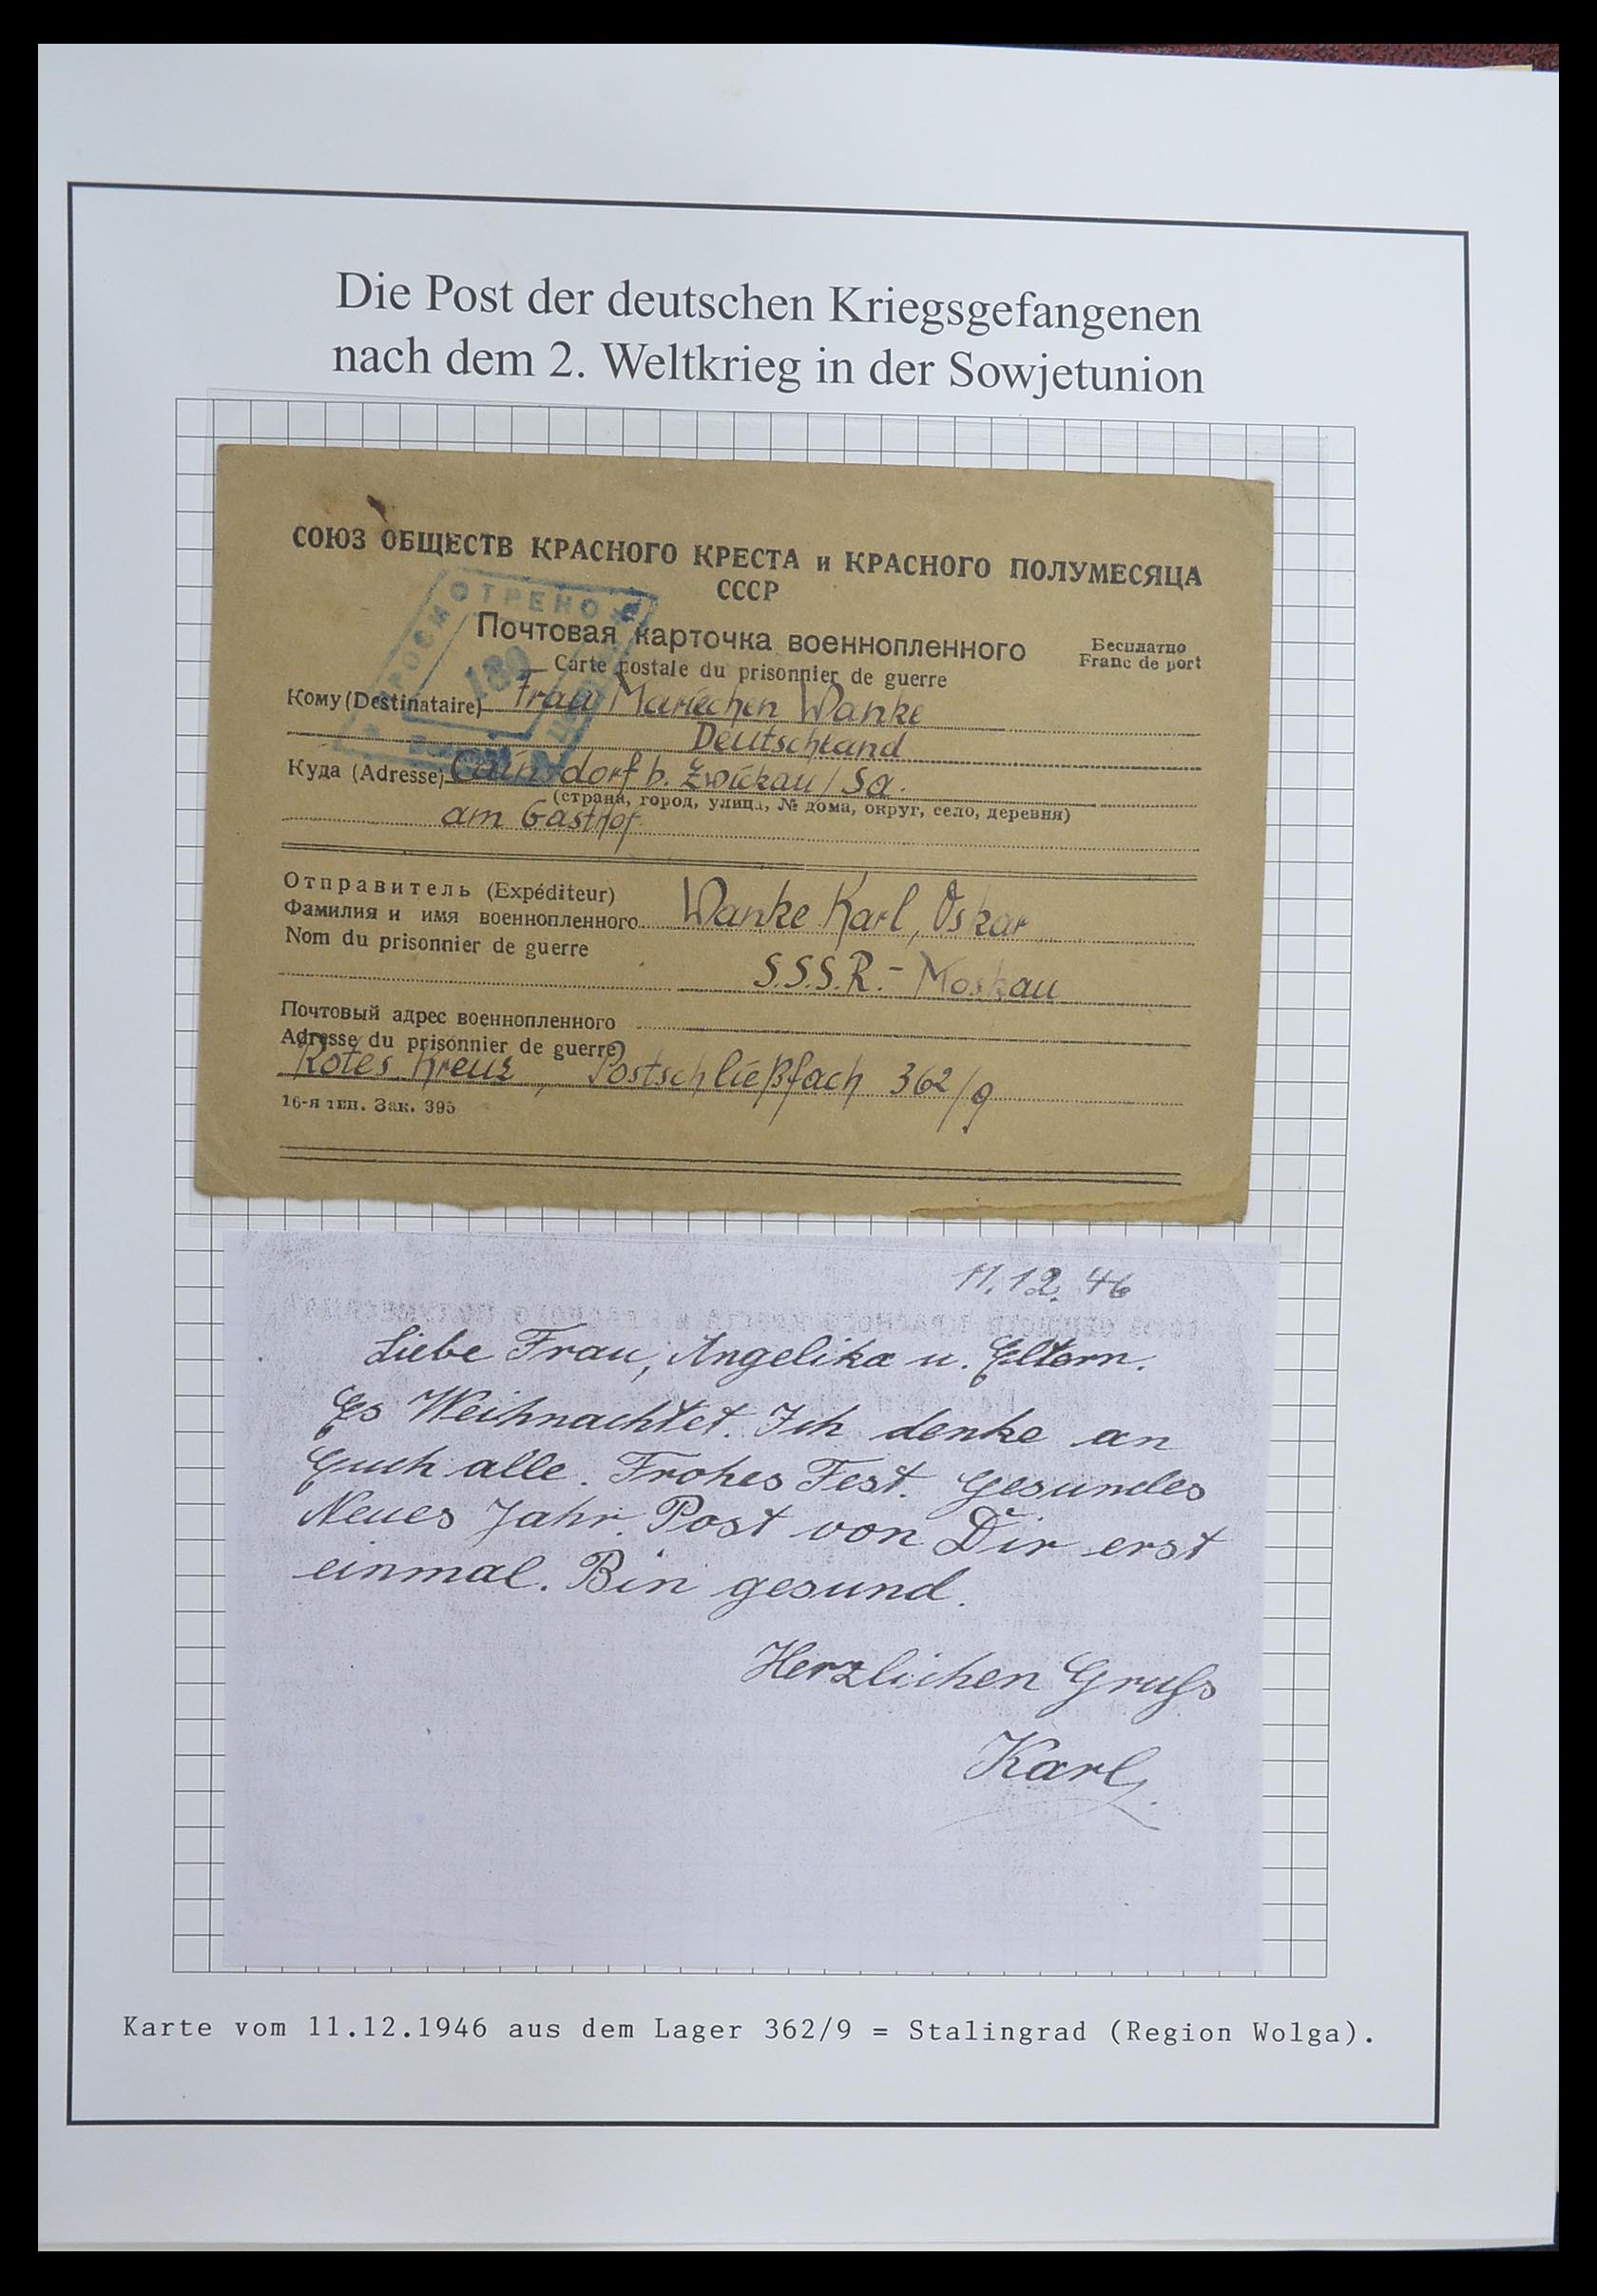 Die Post der deutschen Kriegsgefangenen
nach dem 2. Weltkrieg in der Sowjetunion
СОЮЗ ОБЩЕСТВ КРАСНОГО КРЕСТА и КРАСНОГО ПОЛУМЕСЯЦА
СССР
Почтовая карточка военнопленного
Бесплатно
Carte postale du prisonnier de guerre
Franc de port
Кому (Destinataire) Frau Mariechen Wanke
Deutschland
Куда (Adresse) Cainsdorf b. Zwickau / Sa.
(страна, город, улица, № дома, округ, село, деревня)
am Gasthof
Отправитель (Expéditeur)
Фамилия и имя военнопленного Wanke Karl, Oskar
Nom du prisonnier de guerre
S.S.S.R. - Moskau
Почтовый адрес военнопленного
Adresse du prisonnier de guerre
Rotes Kreuz, Postschließfach 362/9
16-я тип. Зак. 395
11.12.46
Liebe Frau, Angelika u. Eltern.
Es Weihnachtet. Ich denke an
Euch alle. Frohes Fest. Gesundes
Neues Jahr. Post von Dir erst
einmal. Bin gesund.
Herzlichen Gruß
Karl.
Karte vom 11.12.1946 aus dem Lager 362/9 = Stalingrad (Region Wolga).